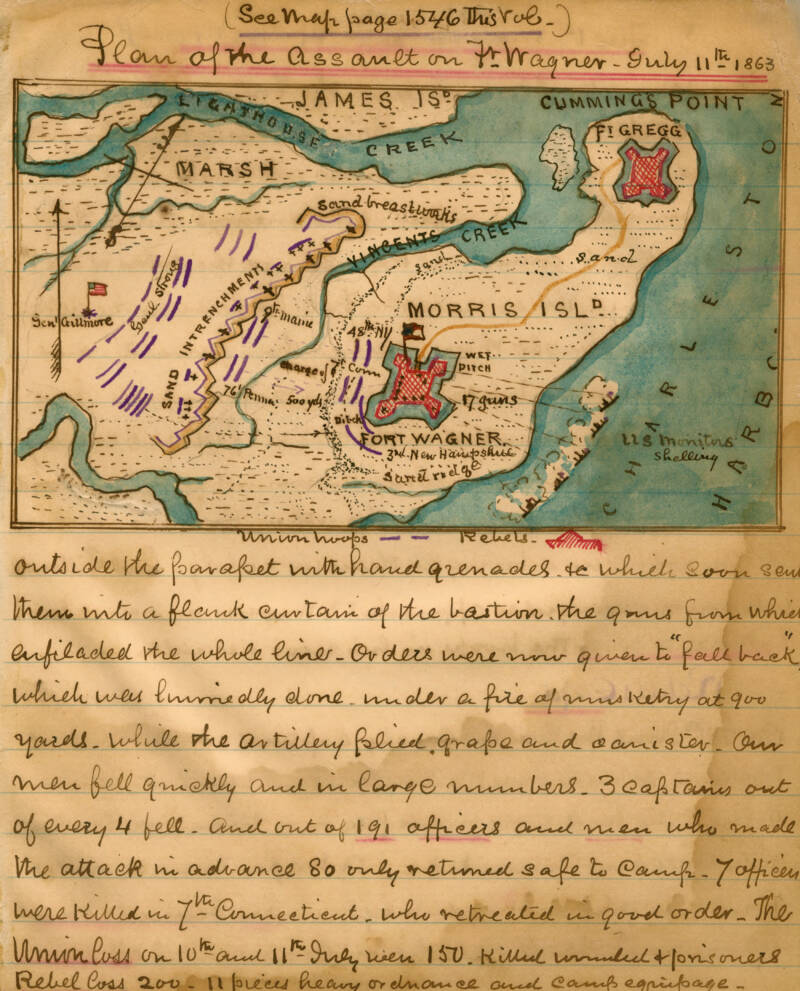 (See Map page 1546 This Vol-)
Plan of the Assault on Ft Wagner - July 11th 1863
LIGHTHOUSE CREEK
JAMES ISD
CUMMINGS POINT
FT GREGG
MARSH
Sand breastworks
VINCENTS CREEK
sand
sand
Genl Strong
SAND INTRENCHMENTS
Genl Gillmore
9th Maine
MORRIS ISLD
48th NY
WET DITCH
Charge of 7th Conn
76th Penna.
500 yds
17 guns
Ditch
FORT WAGNER.
3rd New Hampshire
Sand ridge
US Monitors
shelling
CHARLESTON
HARBO
Union troops
Rebels-
outside the parapet with hand grenades. &c which soon sent
them into a flank curtain of the bastion. the guns from which
enfiladed the whole line- Orders were now given to "fall back",
which was hurriedly done. under a fire of musketry at 900
yards. while the artillery plied. grape and canister- Our
men fell quickly and in large numbers. 3 captains out
of every 4 fell. And out of 191 officers and men who made
the attack in advance 80 only returned safe to Camp. - 7 officers
were Killed in 7th Connecticut. who retreated in good order- The
Union loss on 10th and 11th July were 150. Killed wounded & prisoners
Rebel loss 200- 11 pieces heavy ordnance and camp equipage-